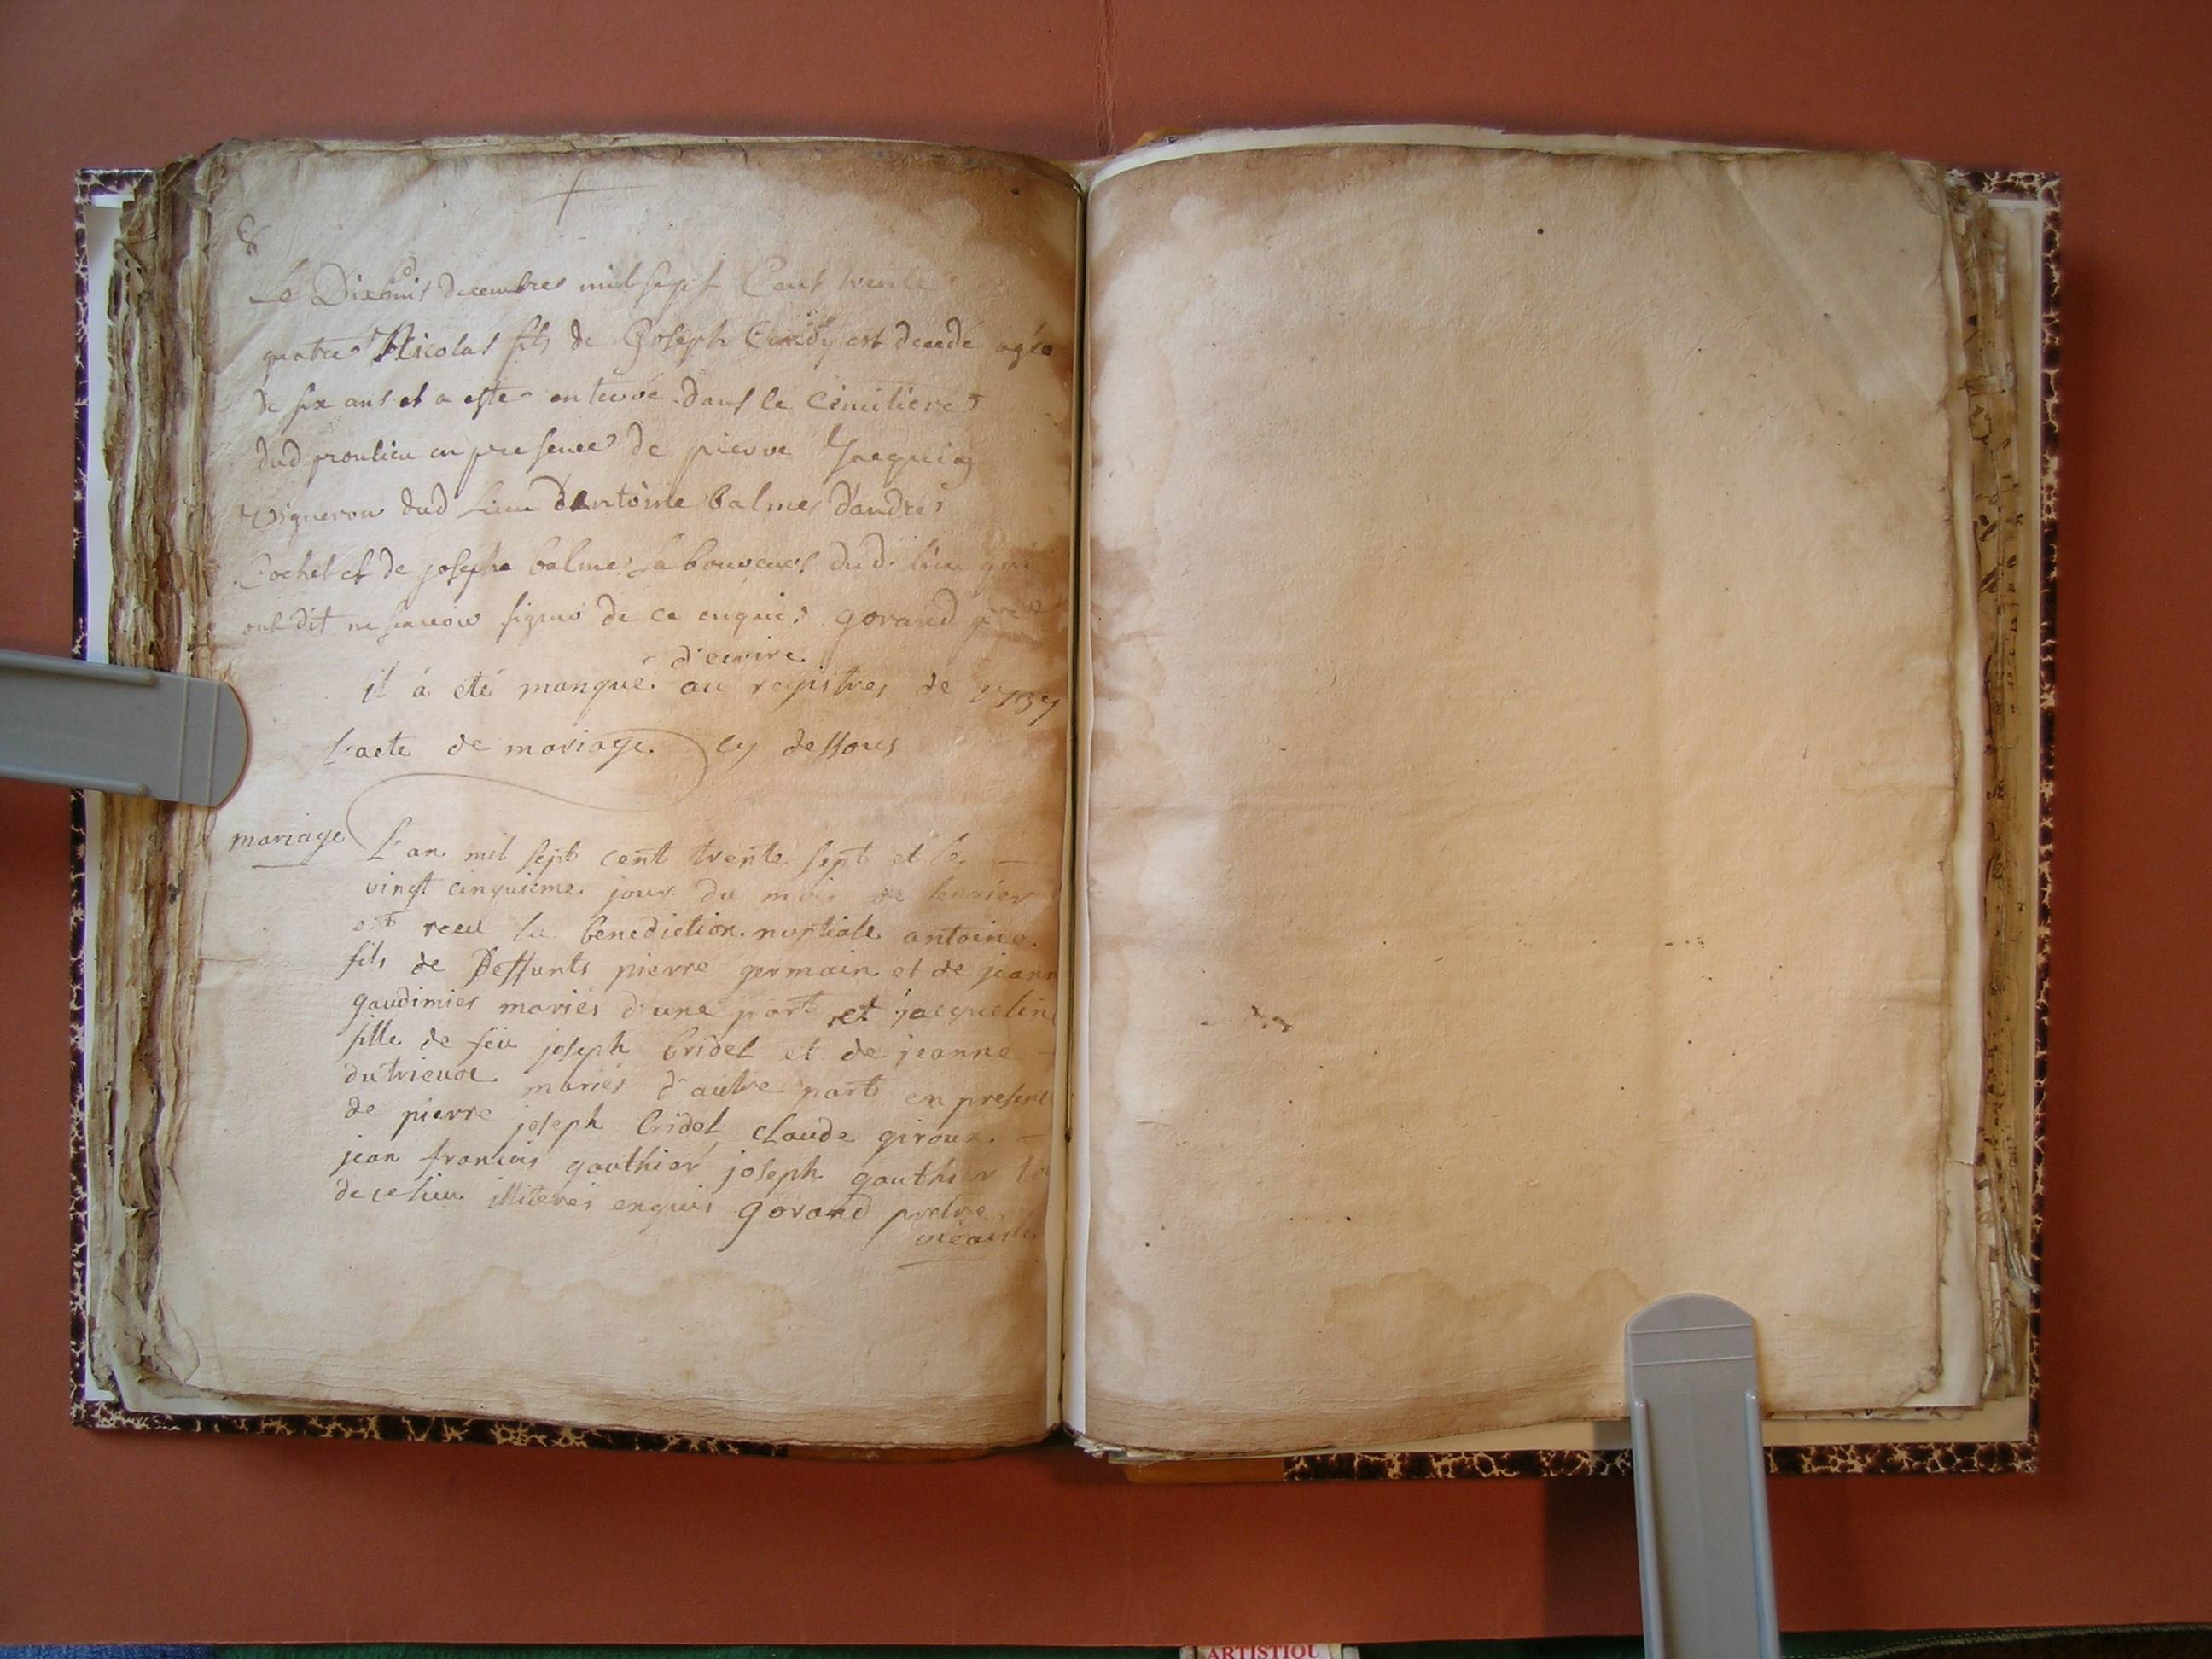 8
Le Dixhuit decembre mil sept Cent trente
quatre Nicolas fils de Joseph est decedé agée
de six ans et a este enterré dans le Cimitiere
dud proulieu en presence de pierre Jacquin
Vigneron dud Lieu d'Antoine balme d'andré
Cochet et de joseph balme Laboureurs dud. lieu qui
ont dit ne scavoir signer de ce enquis gorand
d'ecrire
il á eté manque au registres de 1737
L'acte de mariage cy dessous
mariage
L'an mil sept cent trente sept et le
vingt cinquieme jour du mois de feuvrier
ont receu la benediction nuptiale antoine
fils de Deffunts pierre germain et de jeann
gaudimier mariés d'une part et jacquelin
fille de feu joseph bridel et de jeanne
dutrieux mariés d'autre part en presenc
de pierre joseph bridel claude giroux
jean francois gauthier joseph gauthier
de ce lieu illiterés enquis gorand pretre
vicaire
ARTISTIQU